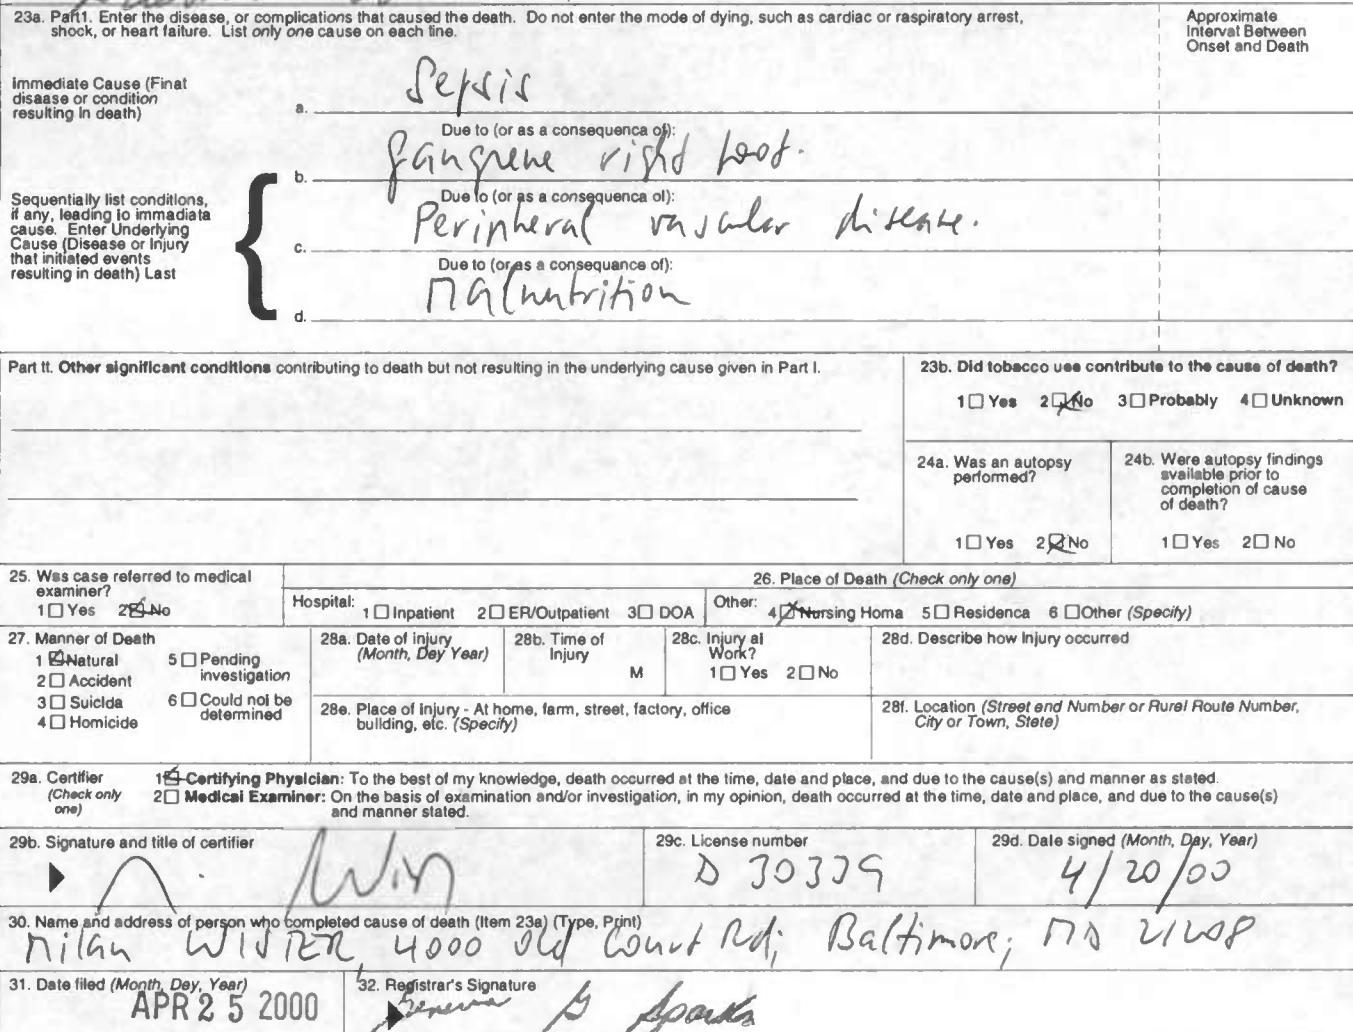 23a. Part1. Enter the disease, or complications that caused the death. Do not enter the mode of dying, such as cardiac or raspiratory arrest,
shock, or heart failure. List only one cause on each line.
Approximate
Interval Between
Onset and Death
Immediate Cause (Final
disaase or condition
resulting in death)
a. Sepsis
Due to (or as a consequenca of):
b. gangrene right foot.
Sequentially list conditions,
if any, leading to immadiata
cause. Enter Underlying
Cause (Disease or Injury
that initiated events
resulting in death) Last
Due to (or as a consequenca of):
c. Peripheral vascular disease.
Due to (or as a consequance of):
d. Malnutrition
Part II. Other significant conditions contributing to death but not resulting in the underlying cause given in Part I.
23b. Did tobacco use contribute to the cause of death?
1 Yes 2 No 3 Probably 4 Unknown
24a. Was an autopsy
performed?
1 Yes 2 No
24b. Were autopsy findings
available prior to
completion of cause
of death?
1 Yes 2 No
25. Was case referred to medical
examiner?
1 Yes 2 No
26. Place of Death (Check only one)
Hospital: 1 Inpatient 2 ER/Outpatient 3 DOA Other: 4 Nursing Homa 5 Residenca 6 Other (Specify)
27. Manner of Death
1 Natural
2 Accident
3 Suicida
4 Homicide
5 Pending
investigation
6 Could not be
determined
28a. Date of injury
(Month, Day Year)
28b. Time of
Injury
M
28c. Injury at
Work?
1 Yes 2 No
28d. Describe how Injury occurred
28e. Place of Injury - At home, farm, street, factory, office
building, etc. (Specify)
28f. Location (Street and Number or Rural Route Number,
City or Town, State)
29a. Certifier
(Check only
one)
1 Certifying Physician: To the best of my knowledge, death occurred at the time, date and place, and due to the cause(s) and manner as stated.
2 Medical Examiner: On the basis of examination and/or investigation, in my opinion, death occurred at the time, date and place, and due to the cause(s)
and manner stated.
29b. Signature and title of certifier
29c. License number
D 30339
29d. Date signed (Month, Day, Year)
4/20/00
30. Name and address of person who completed cause of death (Item 23a) (Type, Print)
Milan WISTER, 4000 Old Court Rd; Baltimore; MD 21208
31. Date filed (Month, Day, Year)
APR 25 2000
32. Registrar's Signature
Geneva G Sparks